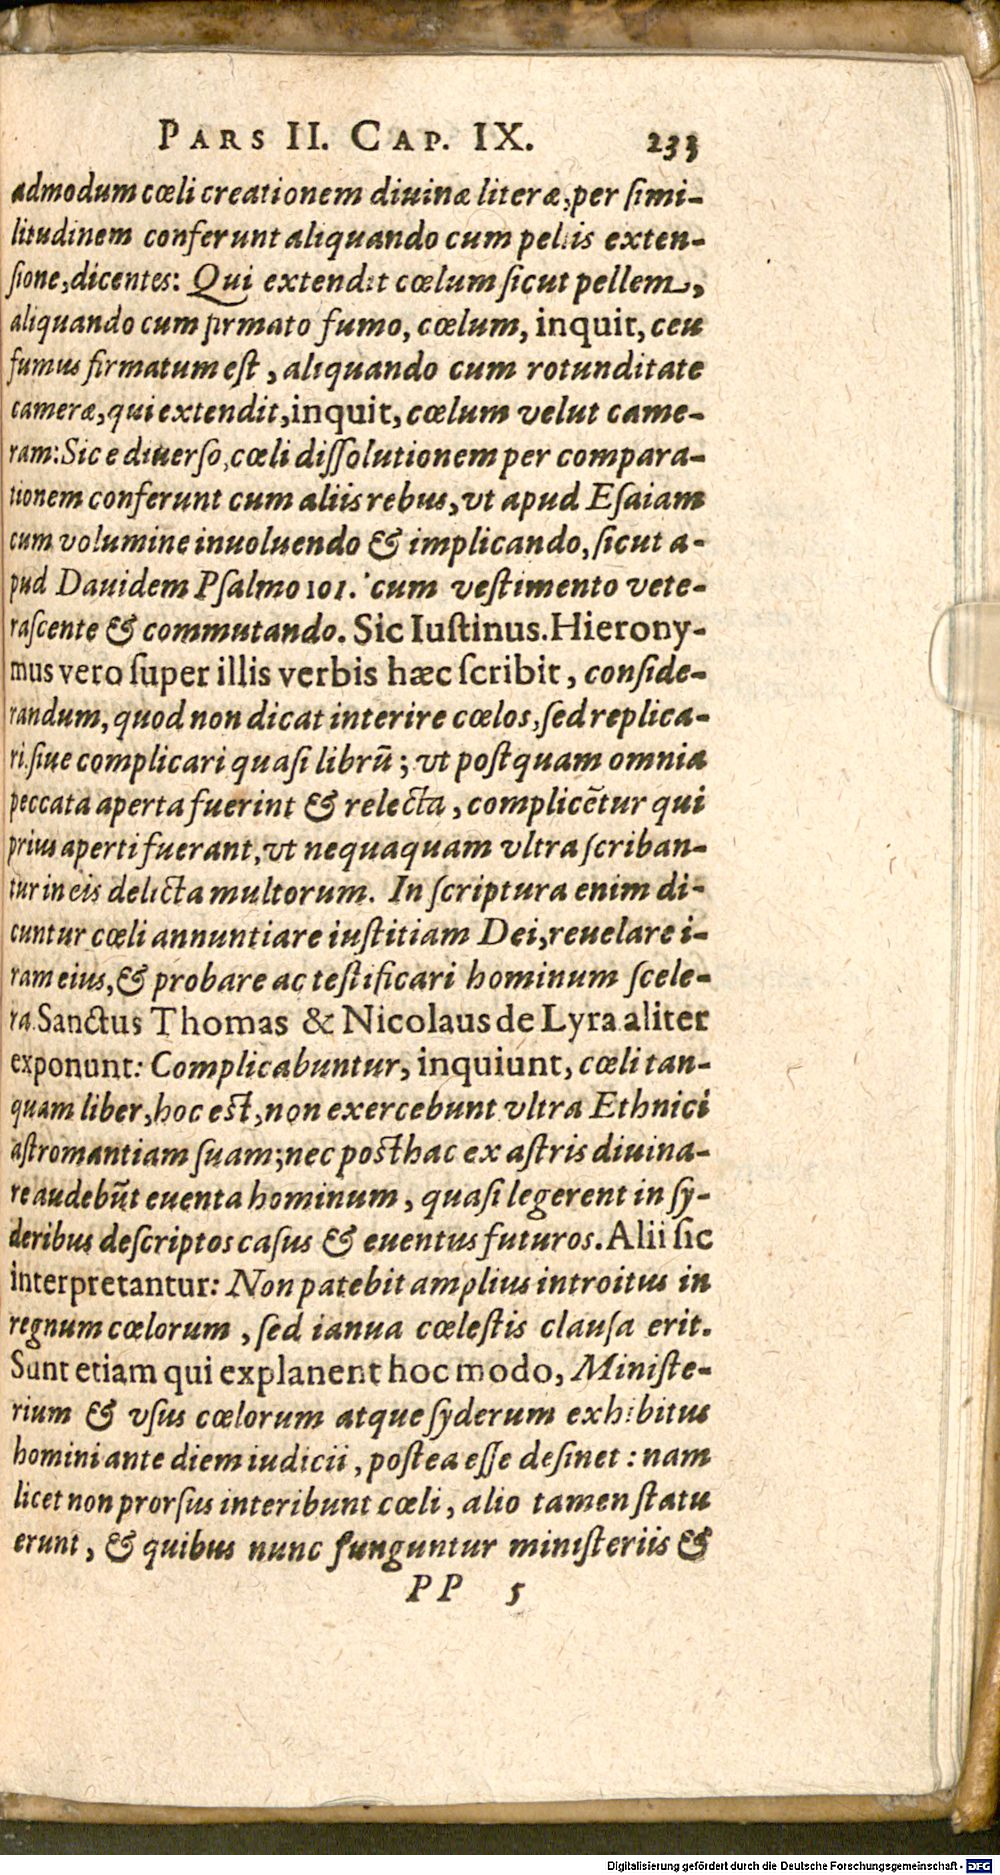 PARS II. CAP. IX. 233
admodum cœli creationem diuinæ literæ, per ſimi-
litudinem conferunt aliquando cum pellis exten-
ſione, dicentes: Qui extendit cœlum ſicut pellem,
aliquando cum firmato fumo, cœlum, inquit, ceu
fumus firmatum eſt, aliquando cum rotunditate
cameræ, qui extendit, inquit, cœlum velut came-
ram: Sic e diuerſo, cœli diſſolutionem per compara-
tionem conferunt cum aliis rebus, vt apud Eſaiam
cum volumine inuoluendo & implicando, ſicut a-
pud Dauidem Pſalmo 101. cum veſtimento vete-
raſcente & commutando. Sic Iuſtinus. Hierony-
mus vero ſuper illis verbis hæc ſcribit, conſide-
randum, quod non dicat interire cœlos, ſed replica-
ri ſiue complicari quaſi librū; vt poſtquam omnia
peccata aperta fuerint & relecta, complicētur qui
prius aperti fuerant, vt nequaquam vltra ſcriban-
tur in eis delicta multorum. In ſcriptura enim di-
cuntur cœli annuntiare iuſtitiam Dei, reuelare i-
ram eius, & probare ac teſtificari hominum ſcele-
ra. Sanctus Thomas & Nicolaus de Lyra aliter
exponunt: Complicabuntur, inquiunt, cœli tan-
quam liber, hoc eſt, non exercebunt vltra Ethnici
aſtromantiam ſuam; nec poſthac ex aſtris diuina-
re audebūt euenta hominum, quaſi legerent in ſy-
deribus deſcriptos caſus & euentus futuros. Alii ſic
interpretantur: Non patebit amplius introitus in
regnum cœlorum, ſed ianua cœleſtis clauſa erit.
Sunt etiam qui explanent hoc modo, Miniſte-
rium & vſus cœlorum atque ſyderum exhibitus
homini ante diem iudicii, poſtea eſſe deſinet: nam
licet non prorſus interibunt cœli, alio tamen ſtatu
erunt, & quibus nunc funguntur miniſteriis &
PP 5
Digitalisierung gefördert durch die Deutsche Forschungsgemeinschaft - DFG